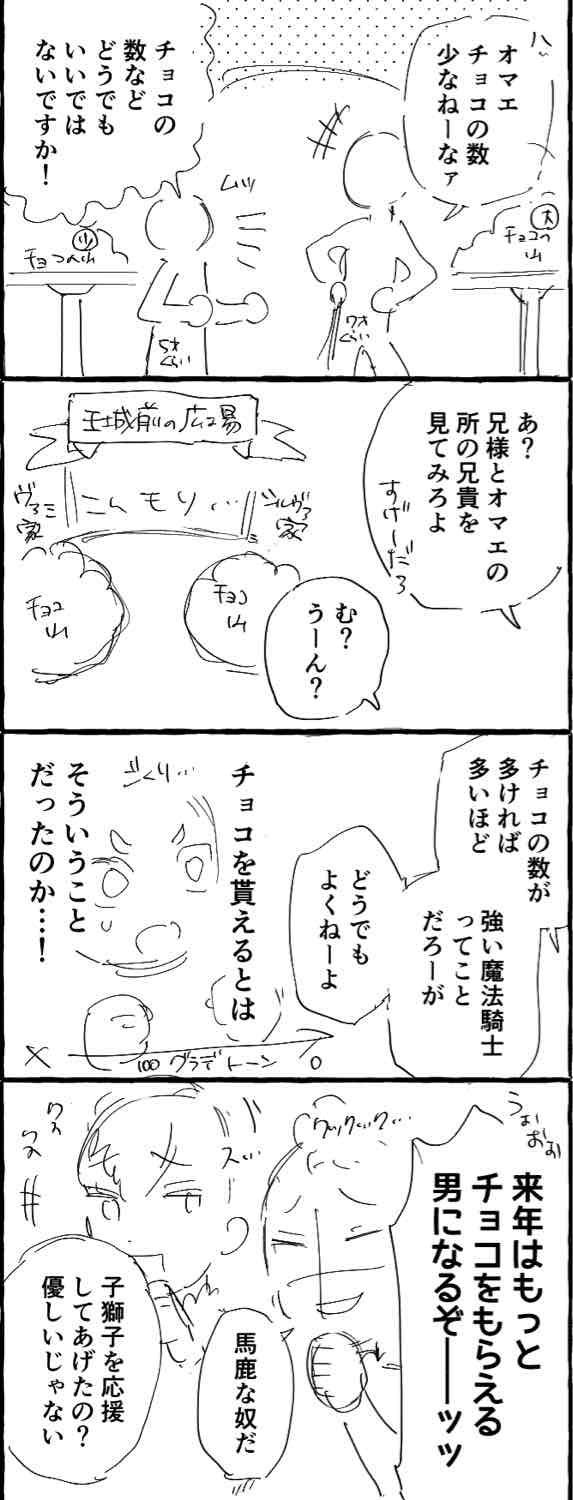 ハッ
オマエ
チョコの数
少なねーなァ
チョコの
数など
どうでも
いいでは
ないですか！
ムッ
大
チョコの
山
小
チョコの山
7才
くらい
5才
くらい
あ？
兄様とオマエの
所の兄貴を
見てみろよ
すげーだろ
王城前の広場
こんもり…
シルヴァ
家
ヴァミ
家
チョコ
山
チョコ
山
む？
うーん？
チョコの数が
多ければ
多いほど
強い魔法騎士
ってこと
だろーが
どうでも
よくねーよ
チョコを貰えるとは
そういうこと
だったのか…！
ごくり…
100 グラデトーン 0
うぉ
おぉお
来年はもっと
チョコをもらえる
男になるぞ――ッッ
クックック…
馬鹿な奴だ
スッ…
ワス
ワス
子獅子を応援
してあげたの？
優しいじゃない